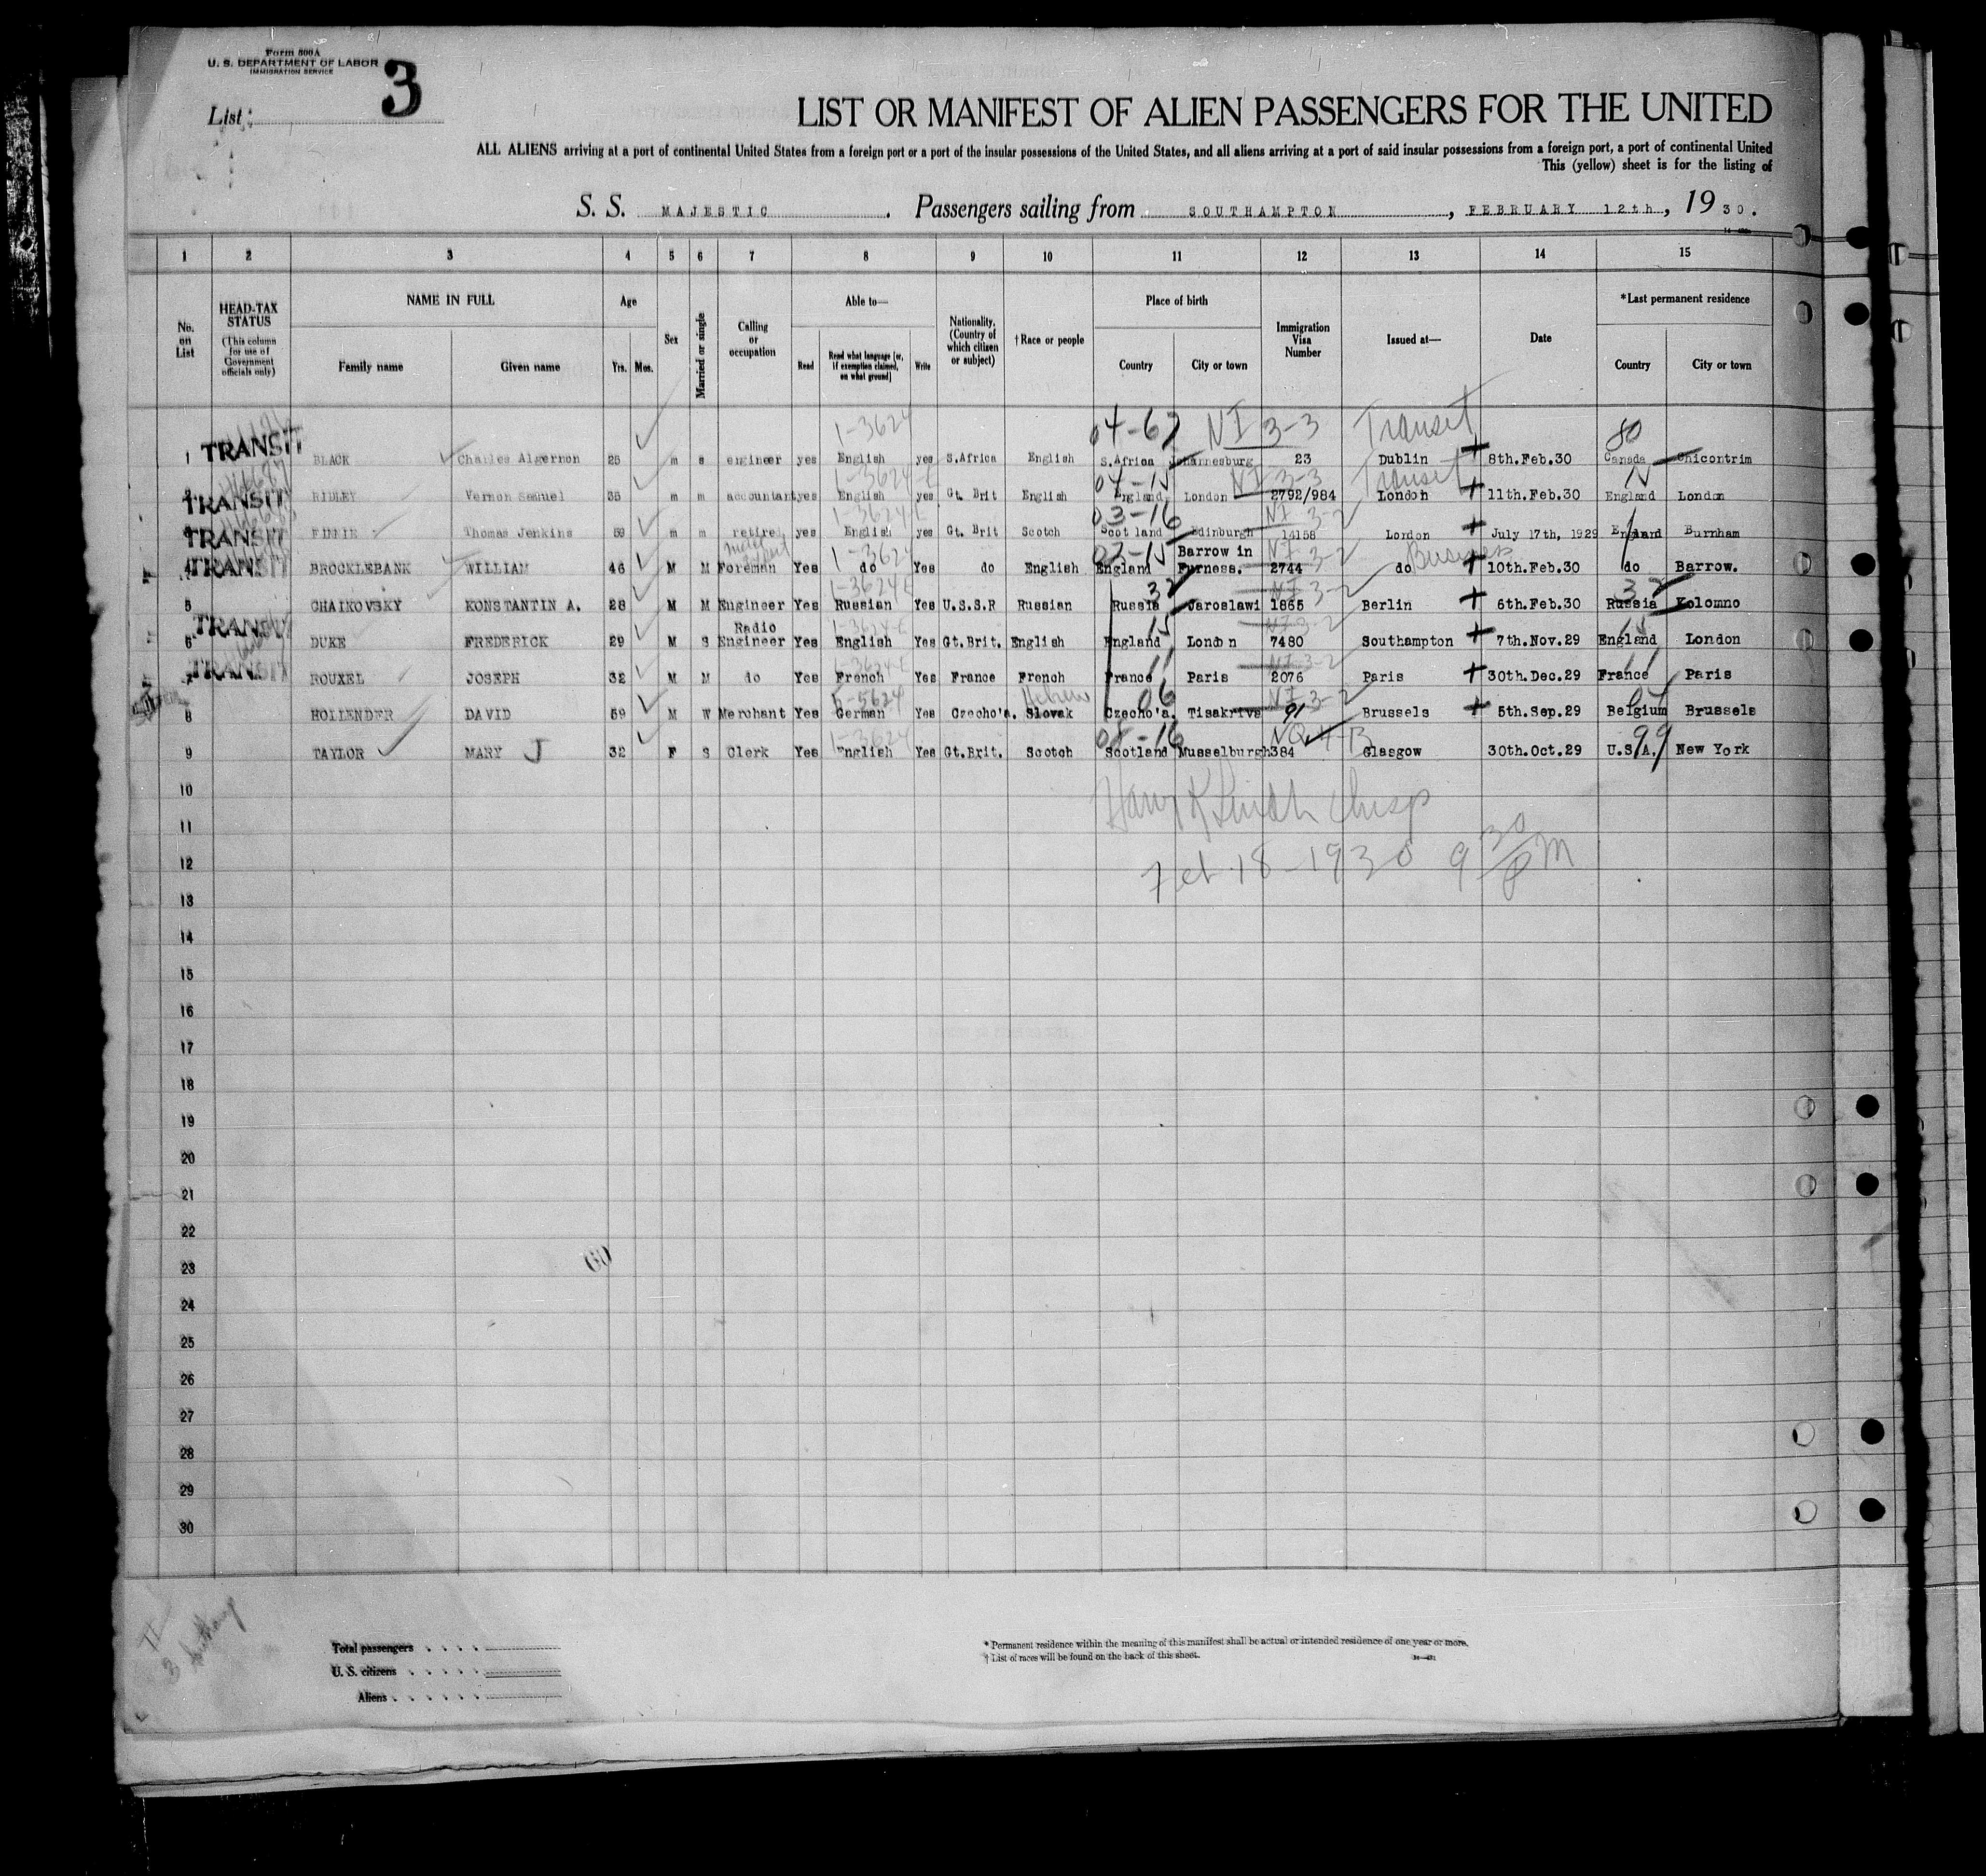 Form 500A
U. S. DEPARTMENT OF LABOR
IMMIGRATION SERVICE
List 3
LIST OR MANIFEST OF ALIEN PASSENGERS FOR THE UNITED
ALL ALIENS arriving at a port of continental United States from a foreign port or a port of the insular possessions of the United States, and all aliens arriving at a port of said insular possessions from a foreign port, a port of continental United
This (yellow) sheet is for the listing of
S. S. MAJESTIC. Passengers sailing from SOUTHAMPTON, FEBRUARY 12th, 1930.
1 2 3 4 5 6 7 8 9 10 11 12 13 14 15
No. on List
HEAD-TAX STATUS (This column for use of Government officials only)
NAME IN FULL
Family name Given name
Age
Yrs. Mos.
Sex
Married or single
Calling or occupation
Able to—
Read Read what language [or, if exemption claimed, on what ground] Write
Nationality. (Country of which citizen or subject)
†Race or people
Place of birth
Country City or town
Immigration Visa Number
Issued at—
Date
*Last permanent residence
Country City or town
1-3624 04-67 NI 3-3 Transit 80
1 TRANSIT BLACK Charles Algernon 25 m s engineer yes English yes S.Africa English S.Africa Johannesburg 23 Dublin 8th.Feb.30 Canada Chicontrim
1-3624-E 04-15 NI 3-3 Transit 15
2 TRANSIT RIDLEY Vernon Samuel 35 m m accountant yes English yes Gt. Brit English England London 2792/984 London 11th.Feb.30 England London
1-3624-E 03-16 NI 3-2
3 TRANSIT Thomas Jenkins 59 m m retired yes English yes Gt. Brit Scotch Scotland Edinburgh 14158 London July 17th, 1929 England Burnham
1-3624 03-15 Barrow in NI 3-2 Business
4 TRANSIT BROCKLEBANK WILLIAM 46 M M Foreman Yes do Yes do English England Furness. 2744 do 10th.Feb.30 do Barrow.
1-3624E 32 NI 3-2 32
5 CHAIKOVSKY KONSTANTIN A. 28 M M Engineer Yes Russian Yes U.S.S.R Russian Russia Jaroslawi 1865 Berlin 6th.Feb.30 Russia Kolomno
TRANSIT Radio 1-3624-E 15 NI 3-2 15
6 DUKE FREDERICK 29 M S Engineer Yes English Yes Gt.Brit. English England London 7480 Southampton 7th.Nov.29 England London
TRANSIT 1-3624-E 11 NI 3-2 11
7 ROUXEL JOSEPH 32 M M do Yes French Yes France French France Paris 2076 Paris 30th.Dec.29 France Paris
5-5624 Hebrew 06 NI 3-2
8 HOLLENDER DAVID 59 M W Merchant Yes German Yes Czecho'a. Slovak Czecho'a. Tisakrivs 91 Brussels 5th.Sep.29 Belgium Brussels
1-3624 01-16 NQ 4-B 99
9 TAYLOR MARY J 32 F S Clerk Yes English Yes Gt.Brit. Scotch Scotland Musselburgh 384 Glasgow 30th.Oct.29 U.S.A. New York
10
11
12 Feb 18-1930 9 30 PM
13
14
15
16
17
18
19
20
21
22
23
24
25
26
27
28
29
30
Total passengers
U. S. citizens
Aliens
* Permanent residence within the meaning of this manifest shall be actual or intended residence of one year or more.
† List of races will be found on the back of this sheet.